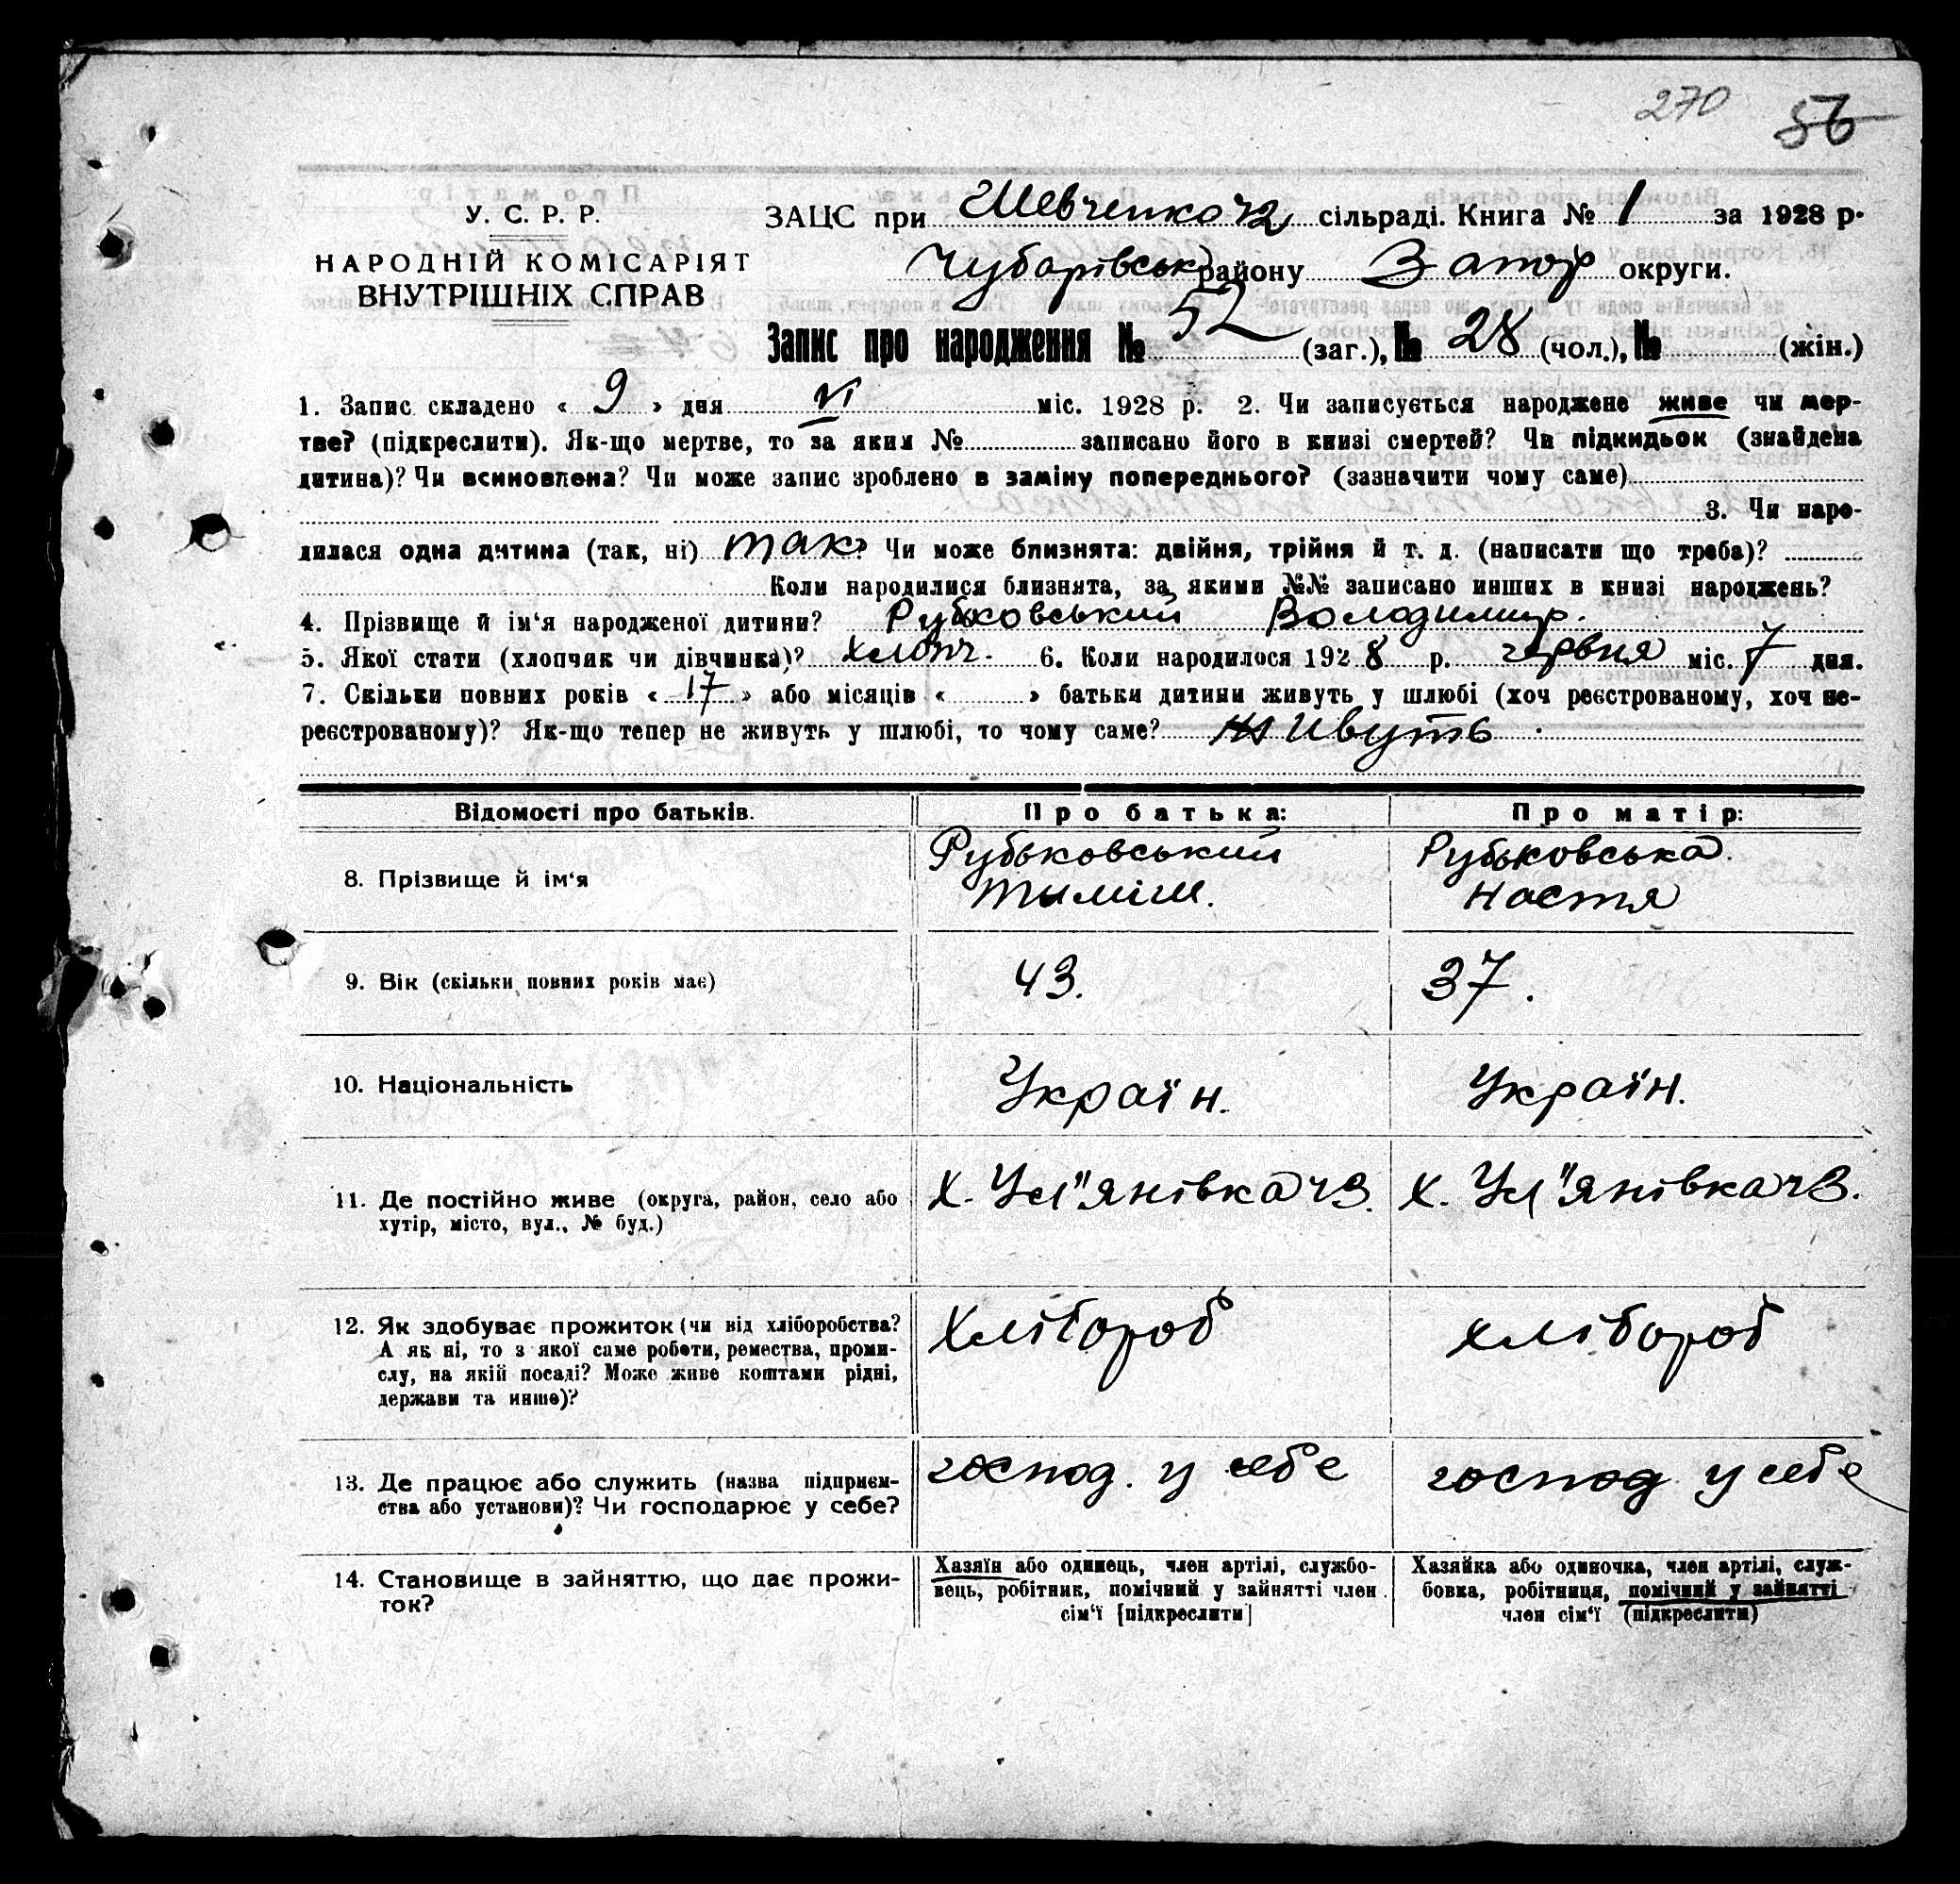 270 56
У. С. Р. Р.
НАРОДНІЙ КОМІСАРІЯТ
ВНУТРІШНІХ СПРАВ
ЗАЦС при Шевченко сільраді. Книга № 1 за 1928 р.
Чубарівськ району Запор округи.
Запис про народження № 52 (заг.), № 28 (чол.), № (жін.)
1. Запис складено « 9 » дня VI міс. 1928 р. 2. Чи записується народжене живе чи мер-
тве? (підкреслити). Як-що мертве, то за яким № записано його в книзі смертей? Чи підкидьок (знайдена
дитина)? Чи всиновлена? Чи може запис зроблено в заміну попереднього? (зазначити чому саме)
3. Чи наро-
дилася одна дитина (так, ні) так? Чи може близнята: двійня, трійня й т. д. (написати що треба)?
Коли народилися близнята, за якими №№ записано инших в книзі народжень?
4. Прізвище й ім‘я народженої дитини? Рубьковський Володимир.
5. Якої стати (хлопчик чи дівчинка)? хлопч. 6. Коли народилося 1928 р. червня міс. 7 дня.
7. Скільки повних років « 17 » або місяців « » батьки дитини живуть у шлюбі (хоч реєстрованому, хоч не-
реєстрованому)? Як-що тепер не живуть у шлюбі, то чому саме? живуть
Відомості про батьків. Про батька: Про матір:
8. Прізвище й ім‘я
Рубьковський Тиміш.
Рубьковська Настя
9. Вік (скільки повних років має) 43. 37.
10. Національність Україн. Україн.
11. Де постійно живе (округа, район, село або
хутір, місто, вул., № буд.)
х. Ул"янівка ЧЗ. х. Ул"янівка ЧЗ.
12. Як здобуває прожиток (чи від хліборобства?
А як ні, то з якої саме роботи, ремества, проми-
слу, на якій посаді? Може живе коштами рідні,
держави та инше)?
Хлібороб хлібороб
13. Де працює або служить (назва підприєм-
ства або установи)? Чи господарює у себе?
господ. у себе господ у себе
14. Становище в зайняттю, що дає прожи-
ток?
Хазяїн або одинець, член артілі, службо-
вець, робітник, помічний у зайнятті член
сім‘ї [підкреслити]
Хазяйка або одиночка, член артілі, служ-
бовка, робітниця, помічний у зайнятті
член сім‘ї (підкреслити)